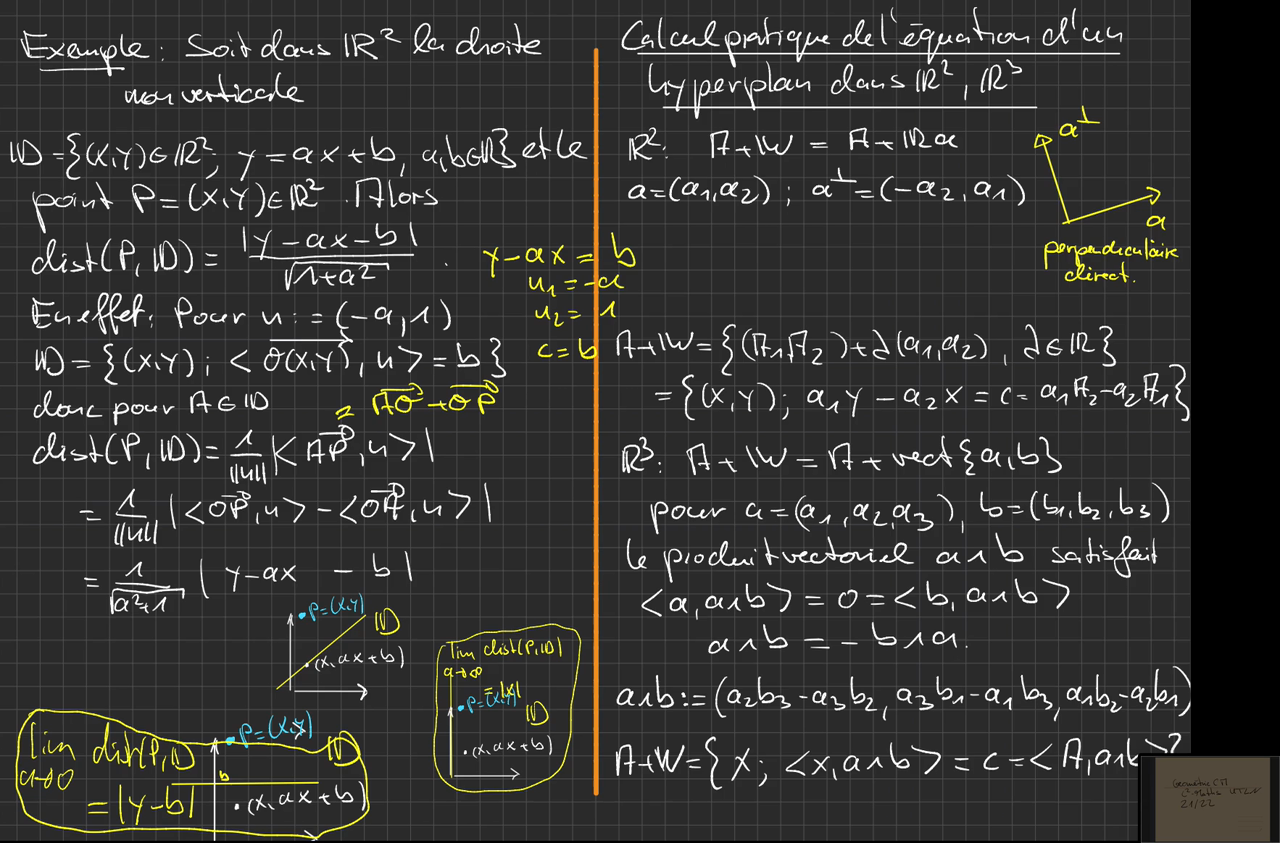 Exemple : Soit dans ℝ² la droite
non verticale
𝔻 = {(x,y)∈ℝ²; y = ax+b, a,b∈ℝ} et le
point P = (x,y)∈ℝ². Alors
dist(P,𝔻) = |y-ax-b| / √(1+a²) .
y-ax = b
u₁ = -a
u₂ = 1
c = b
En effet: Pour u := (-a,1)
𝔻 = {(x,y); <O(x,y), u> = b}
donc pour A∈𝔻
= AO + OP
dist(P,𝔻) = 1/||u|| |<AP,u>|
= 1/||u|| |<OP,u> - <OA,u>|
= 1/√(a²+1) | y-ax - b|
P=(x,y)
𝔻
(x,ax+b)
lim dist(P,𝔻)
a→∞
= |x|
P=(x,y)
𝔻
(x,ax+b)
lim dist(P,𝔻)
a→0
= |y-b|
P=(x,y)
𝔻
b
(x,ax+b)
Calcul pratique de l'équation d'un
hyperplan dans ℝ², ℝ³
ℝ²: A+𝕎 = A+ℝa
a=(a₁,a₂) ; a⊥=(-a₂,a₁)
a⊥
a
perpendiculaire
direct.
A+𝕎 = {(A₁,A₂)+λ(a₁,a₂), λ∈ℝ}
= {(x,y); a₁y - a₂x = c = a₁A₂-a₂A₁}
ℝ³: A+𝕎 = A+vect{a,b}
pour a=(a₁,a₂,a₃), b=(b₁,b₂,b₃)
le produit vectoriel a∧b satisfait
<a,a∧b> = 0 = <b,a∧b>
a∧b = -b∧a.
a∧b := (a₂b₃-a₃b₂, a₃b₁-a₁b₃, a₁b₂-a₂b₁)
A+W = {x; <x,a∧b> = c = <A,a∧b>}
21/22